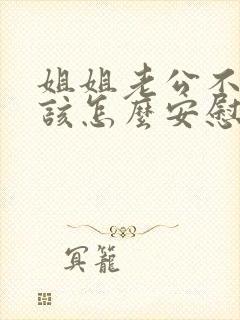 姐姐老公不
該怎麼安慰
冥籠